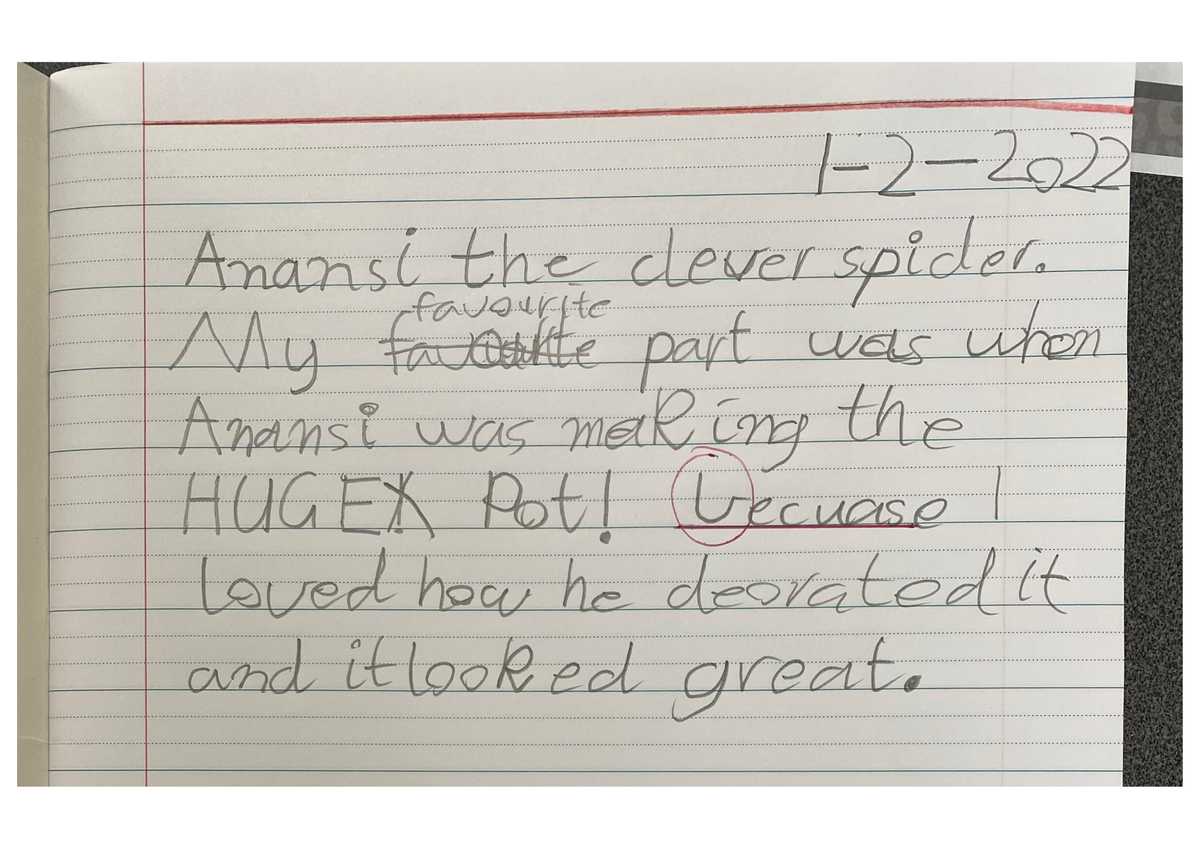 1-2-2022
Anansi the clever spider.
favourite
My favourite part was when
Anansi was making the
HUGE Pot! becuase I
loved how he deorated it
and it looked great.